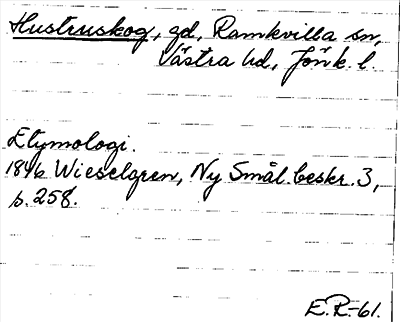 Hustruskog, gd, Ramkvilla sn,
Västra hd, Jönk. l.
Etymologi.
1846 Wieselgren, Ny Smål. beskr. 3,
s. 258.
E.R-61.